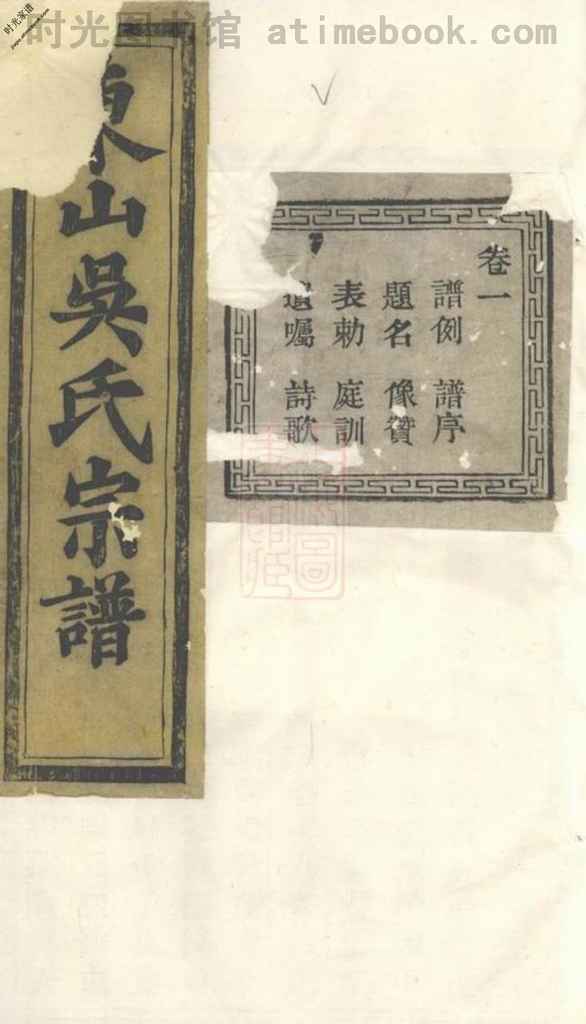 时光图书馆 atimebook.com
时光家谱
東山吳氏宗譜
卷一
譜例 譜序
題名 像贊
表勅 庭訓
遺囑 詩歌